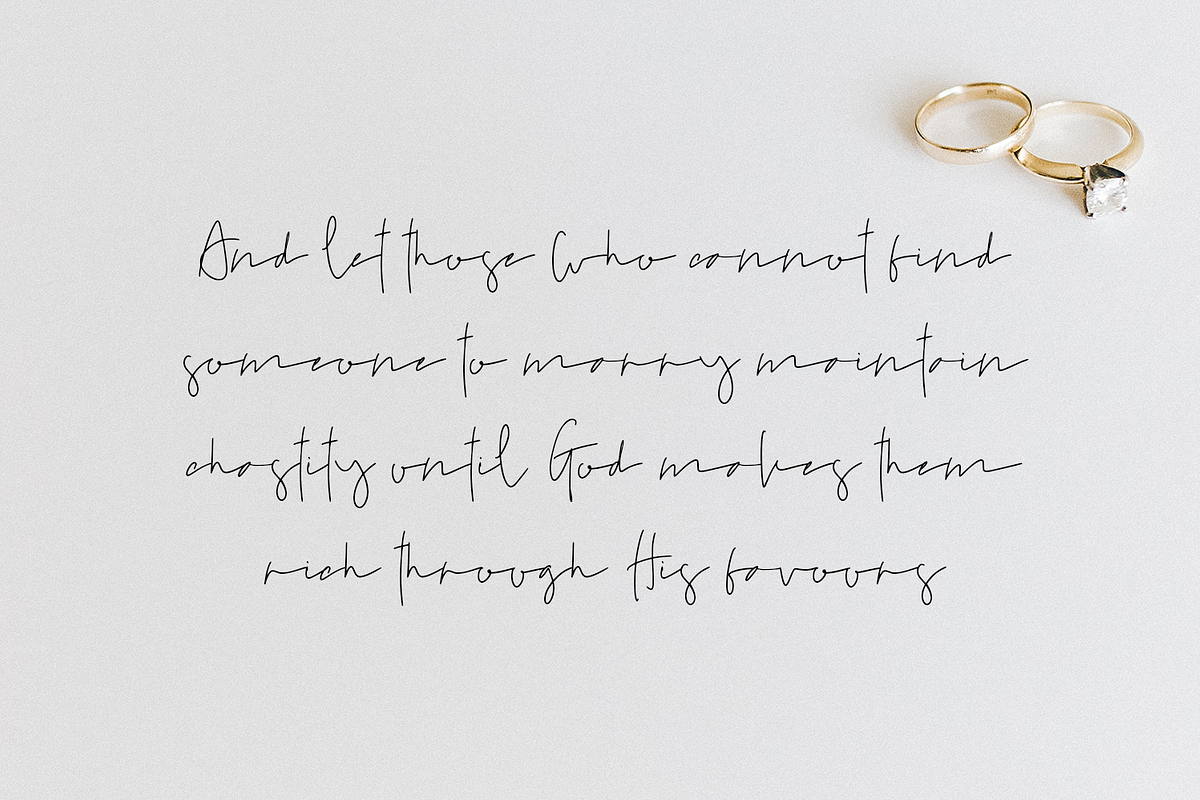 And let those who cannot find
someone to marry maintain
chastity until God makes them
rich through His favours